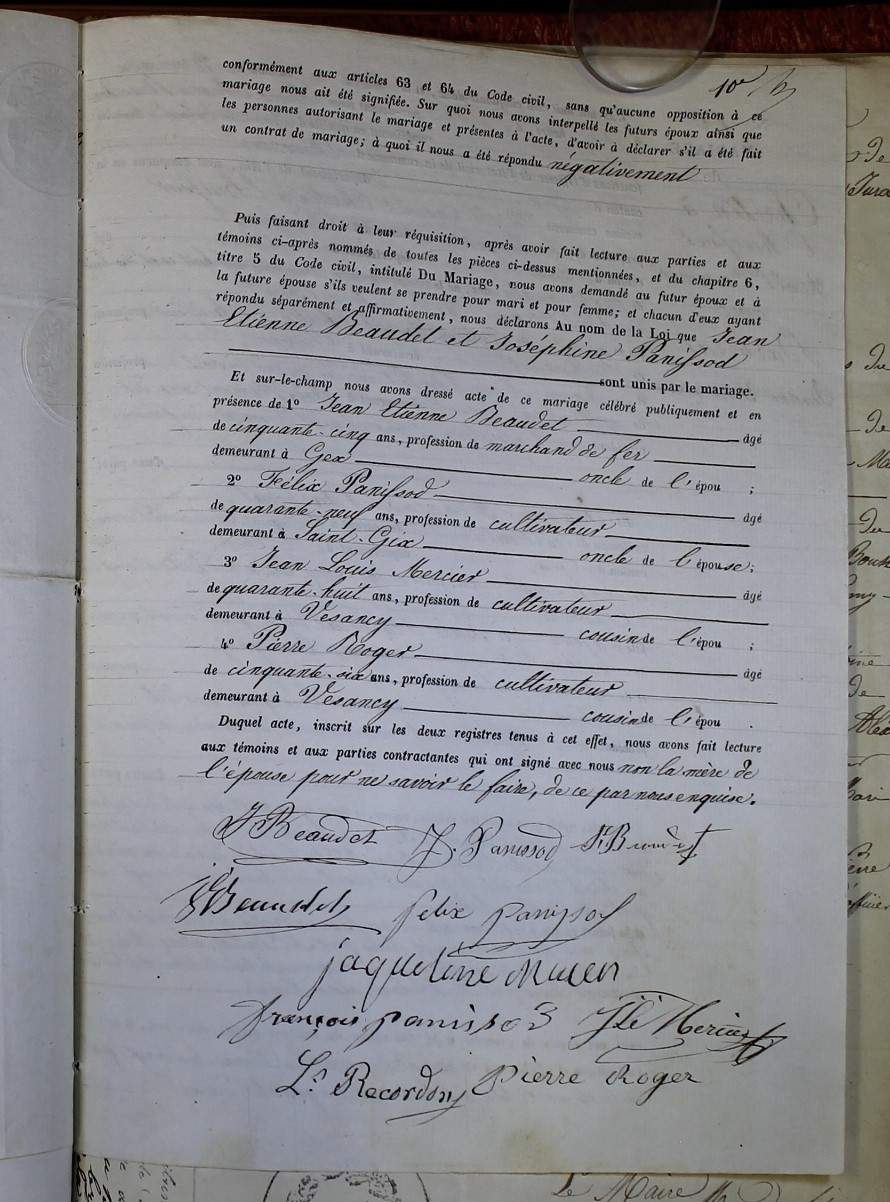 10e
conformément aux articles 63 et 64 du Code civil, sans qu'aucune opposition à ce
mariage nous ait été signifiée. Sur quoi nous avons interpellé les futurs époux ainsi que
les personnes autorisant le mariage et présentes à l'acte, d'avoir à déclarer s'il a été fait
un contrat de mariage; à quoi il nous a été répondu négativement
Puis faisant droit à leur réquisition, après avoir fait lecture aux parties et aux
témoins ci-après nommés de toutes les pièces ci-dessus mentionnées, et du chapitre 6,
titre 5 du Code civil, intitulé Du Mariage, nous avons demandé au futur époux et à
la future épouse s'ils veulent se prendre pour mari et pour femme; et chacun d'eux ayant
répondu séparément et affirmativement, nous déclarons Au nom de la Loi que Jean
Etienne Beaudet et Joséphine Panissod
sont unis par le mariage.
Et sur-le-champ nous avons dressé acte de ce mariage célébré publiquement et en
présence de 1° Jean Etienne Beaudet âgé
de cinquante-cinq ans, profession de marchand de fer
demeurant à Gex oncle de l'épou ;
2° Félix Panissod âgé
de quarante-neuf ans, profession de cultivateur
demeurant à Saint-Gix oncle de l'épouse;
3° Jean Louis Mercier âgé
de quarante-huit ans, profession de cultivateur
demeurant à Vesancy cousin de l'épou ;
4° Pierre Roger âgé
de cinquante-six ans, profession de cultivateur
demeurant à Vesancy cousin de l'épou .
Duquel acte, inscrit sur les deux registres tenus à cet effet, nous avons fait lecture
aux témoins et aux parties contractantes qui ont signé avec nous non la mère de
l'épouse pour ne savoir le faire, de ce par nous enquise.
J Beaudet J. Panissod
Beaudet felix panissod
jaqueline
françois panissod Mercier
Ls Recordon Pierre Roger
Le Maire